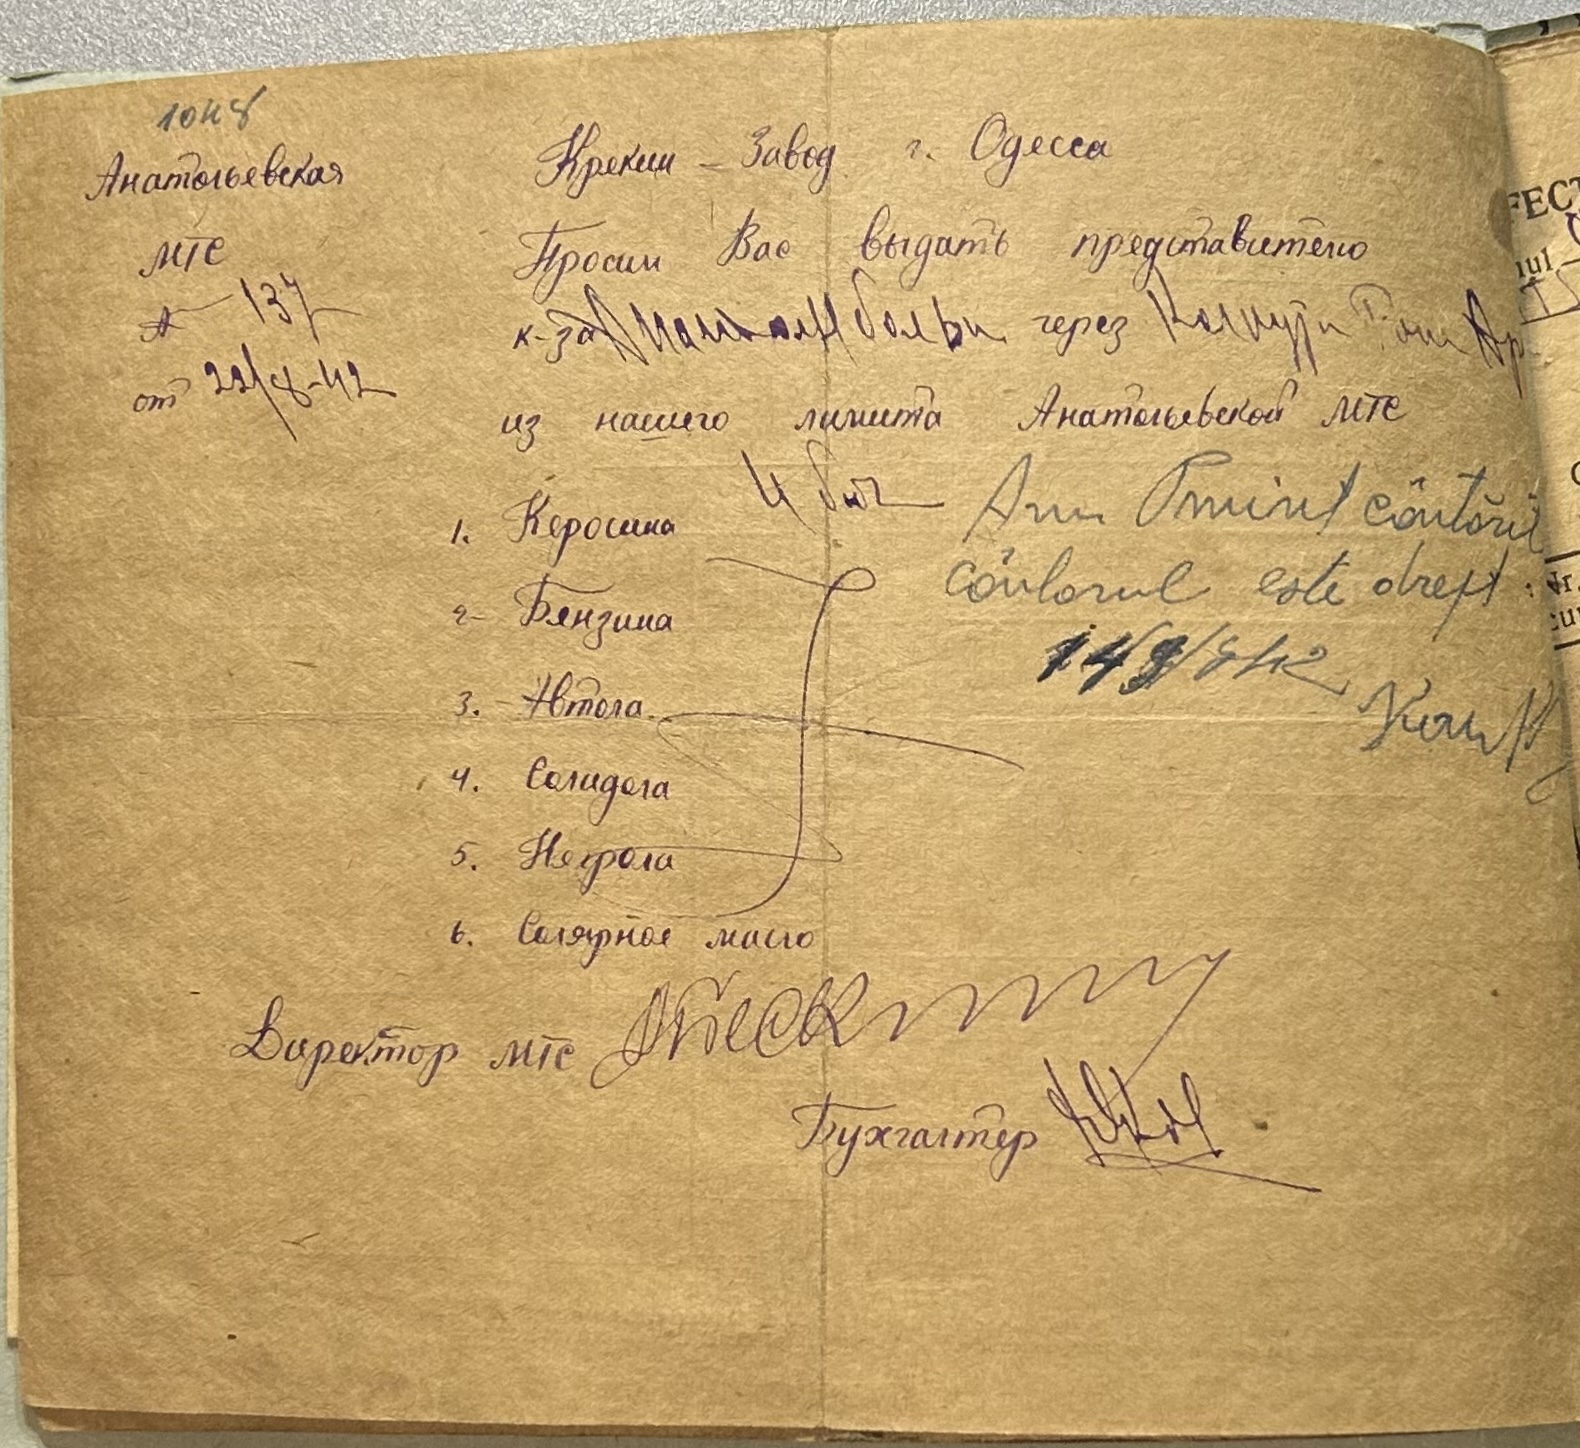 1048
Анатольевская
МТС
№ 137
от 22/8-42
Крекин - Завод г. Одесса
Просим Вас выдать представителю
к-за через
из нашего лимита Анатольевской МТС
1. Керосина 4 боч
2- Бензина
3. Автола
4. Солидола
5. Негрола
6. Солярное масло
Am Primit cântărit
cântarul este drept
Директор МТС
Бухгалтер
FECT